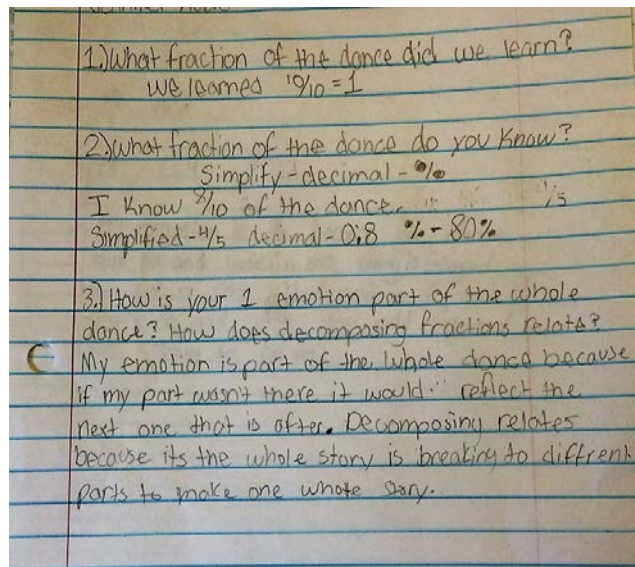 1.) What fraction of the dance did we learn?
We learned 10/10 = 1
2.) What fraction of the dance do you know?
Simplify - decimal - %
I know 8/10 of the dance.
Simplified - 4/5 decimal - 0.8 % - 80%
3.) How is your 1 emotion part of the whole
dance? How does decomposing fractions relate?
My emotion is part of the whole dance because
if my part wasn't there it would reflect the
next one that is after. Decomposing relates
because its the whole story is breaking to diffrent
parts to make one whote story.